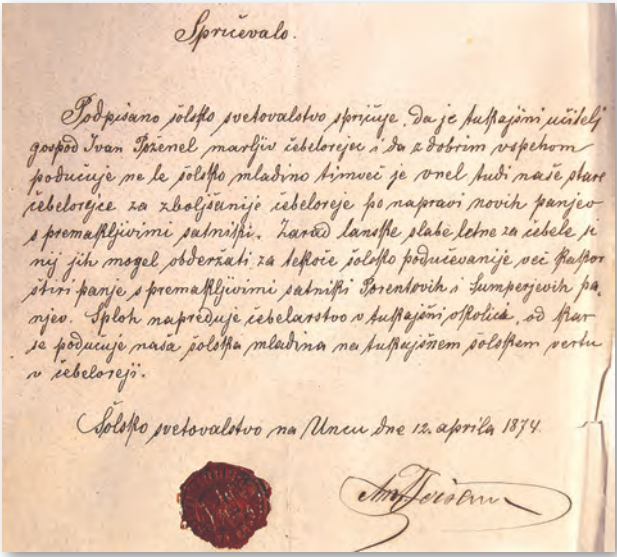 Spričevalo.
Podpisano šolsko svetovalstvo spričuje, da je tukajšni učitelj
gospod Ivan Poženel marljiv čebelorejec i da z dobrim vspehom
podučuje ne le šolsko mladino timveč je vnel tudi naše stare
čebelorejce za zboljšanije čebeloreje po napravi novih panjev
s premakljivimi satniki. Zarad lanske slabe letne za čebele si
nij jih mogel obderžati za tekoče šolsko podučevanije več kakor
štiri panje s premakljivimi satniki Porentovih i Šumperjevih pa-
njev. Sploh napreduje čebelarstvo v tukajšni okolici, od kar
se podučuje naša šolska mladina na tukajšnem šolskem vertu
v čebeloreji.
Šolsko svetovalstvo na Uncu dne 12. aprila 1874.